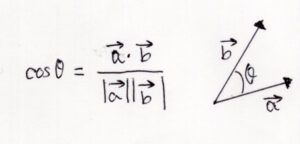 cosθ = (a⃗ · b⃗) / (|a⃗||b⃗|)
b⃗
θ
a⃗